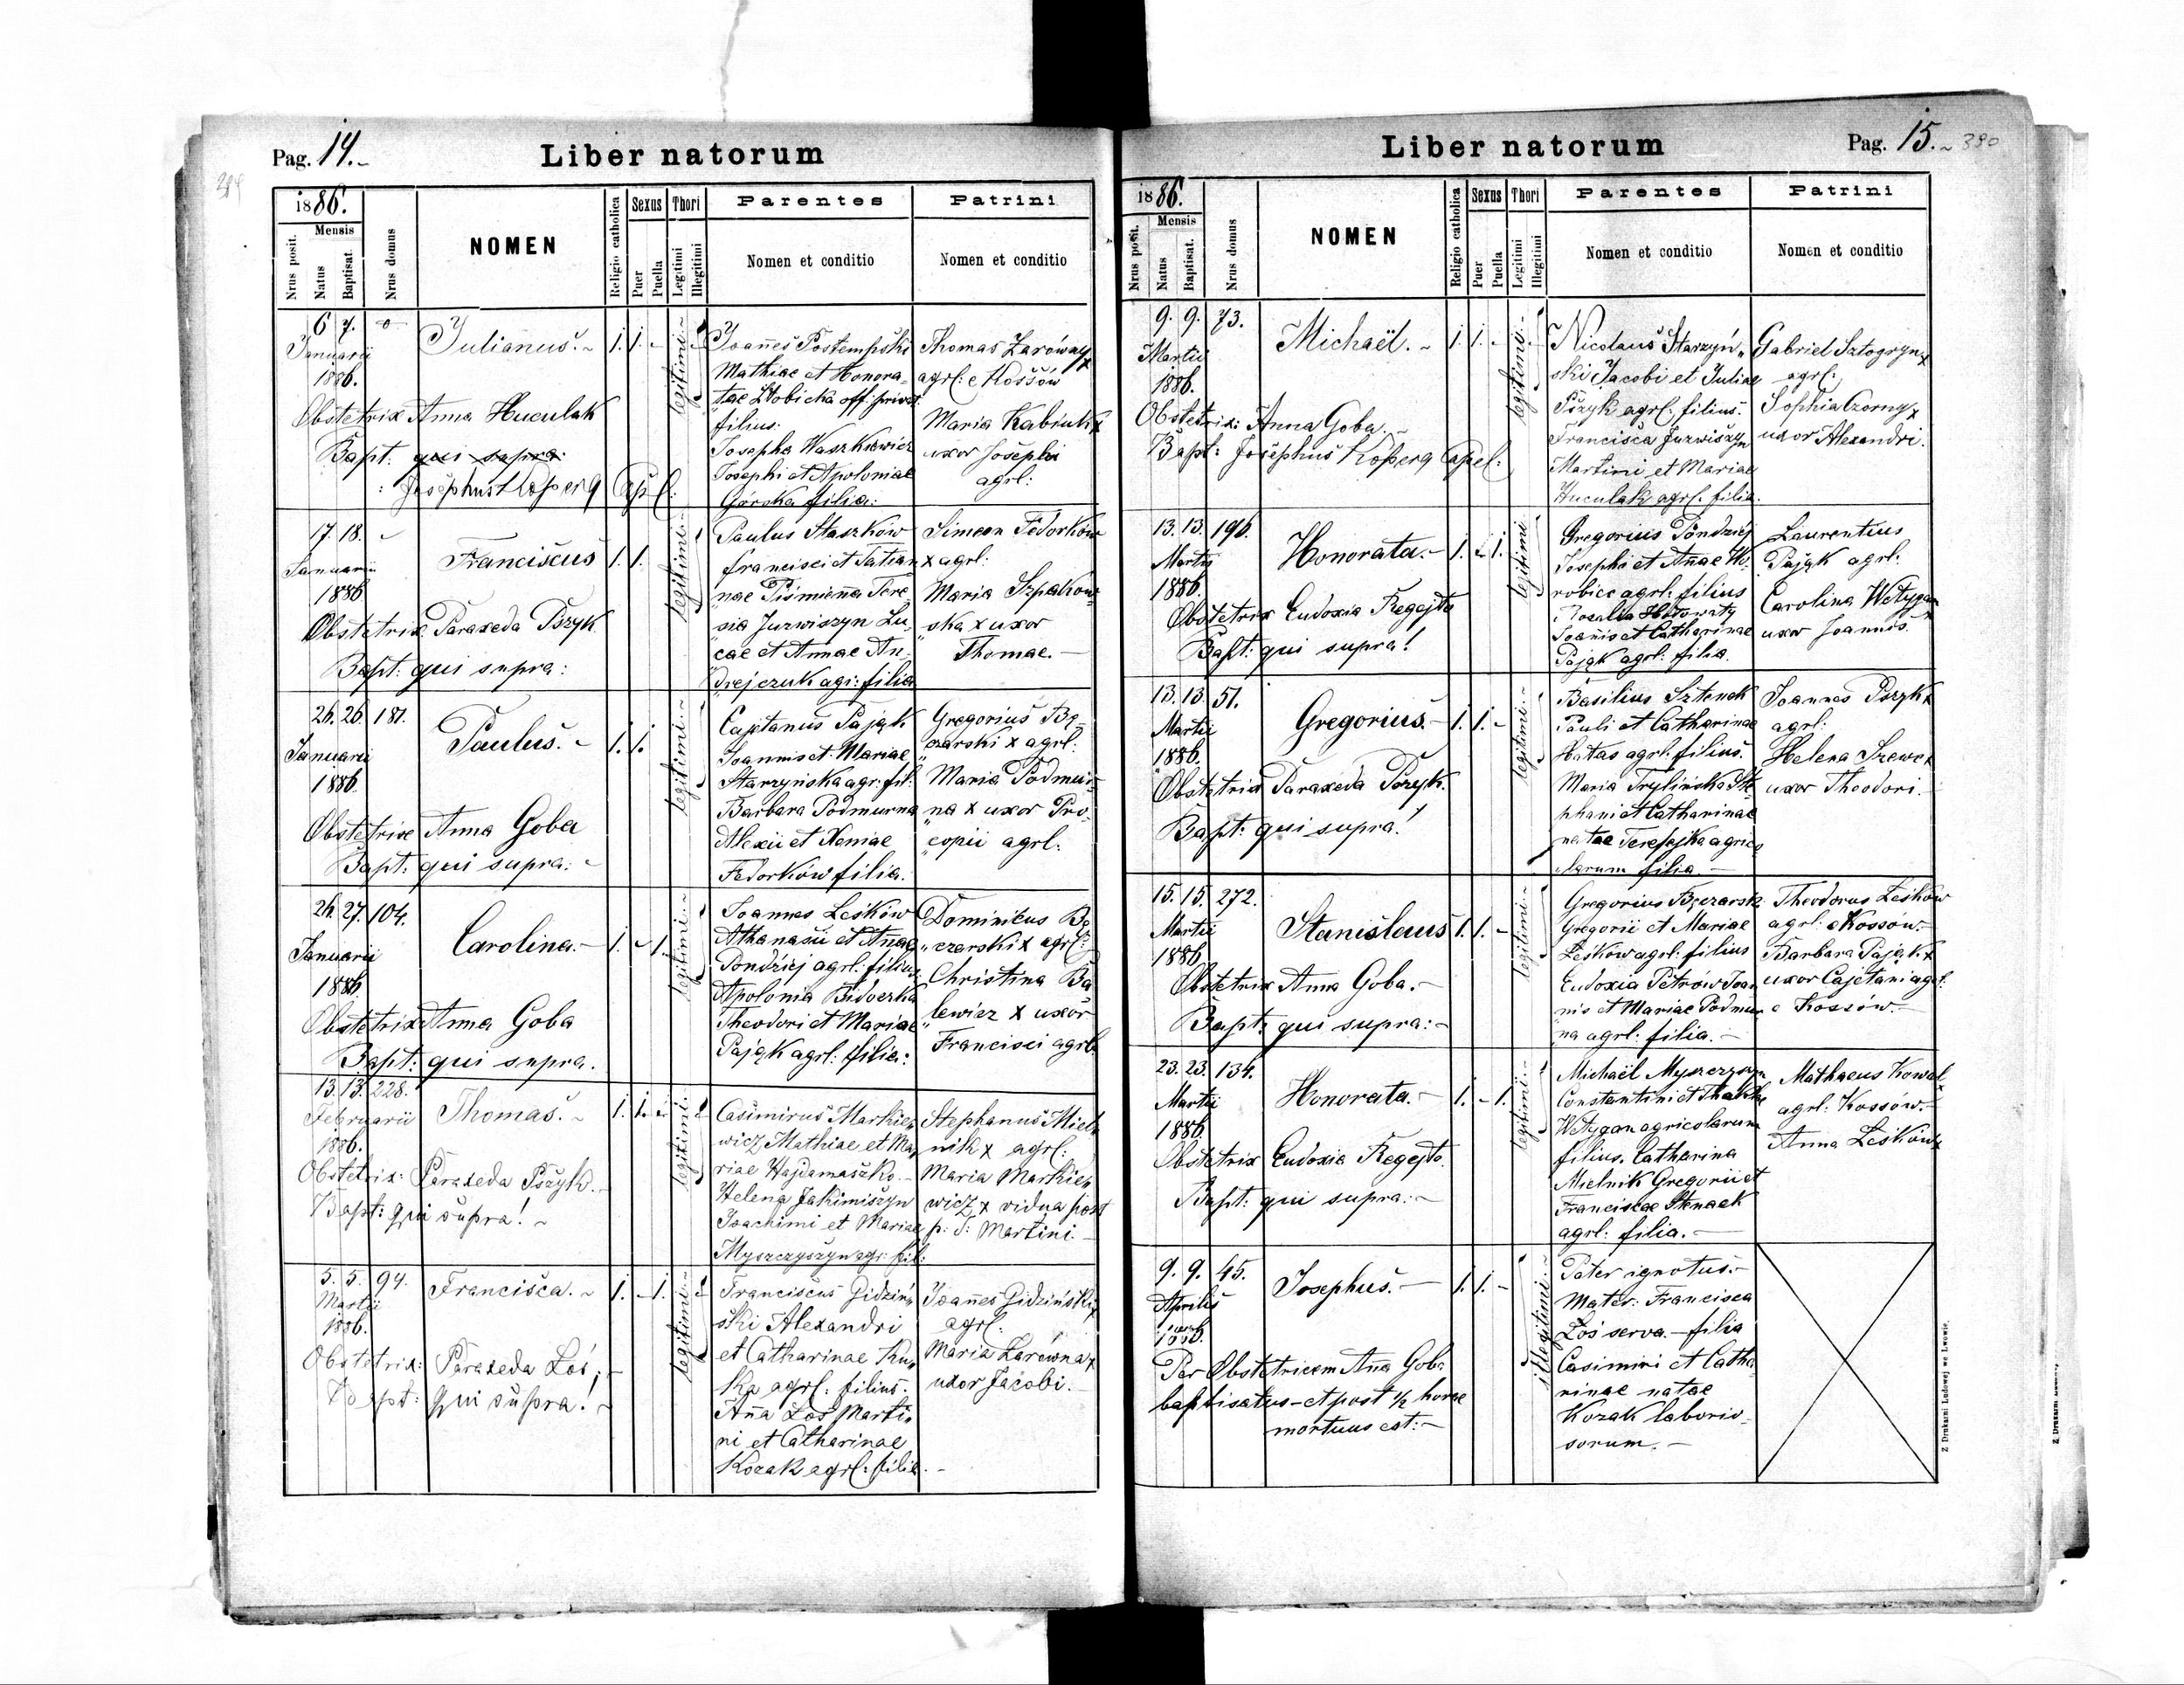 Pag. 14.-
Liber natorum
1886.
Mensis
Nrus posit.
Natus
Baptisat.
Nrus domus
NOMEN
Religio catholica
Sexus
Puer
Puella
Thori
Legitimi
Illegitimi
Parentes
Nomen et conditio
Patrini
Nomen et conditio
6 7.
Januarii
1886.
Julianus.
1. 1. -
legitimi
Joannes Postempski
Mathiae et Honora-
tae off: privat.
filius:
Josepha Waszkiewicz
Josephi et Apoloniae
Górska filia:
Thomas Zarówny x
agrl: e Kossów
Maria Kabiuk x
uxor Josephi
agrl:
Obstetrix Anna Huculak
Bapt: qui supra:
: Josephus Kopperg Capel:
17. 18.
Januarii
1886
Franciscus
1. 1.
legitimi
Paulus Staszków
Francisci et Tatian
nae Piśmienna Tere-
sia Jurwiszyn Lu-
cae et Annae An-
drejczuk agr: filia
Simeon Fedorków
x agrl:
Maria Szpakow-
ska x uxor
Thomae.
Obstetrix Paraxeda Pszyk
Bapt: qui supra:
26. 26. 181.
Januarii
1886.
Paulus.
1. 1.
legitimi
Cajtanus Pająk
Joannis et Mariae
Starzyńska agr: fil:
Barbara Podmurna
Alexii et Xeniae
Fedorków filia.
Gregorius Bę-
czarski x agrl:
Maria Podmur-
na x uxor Pro-
copii agrl:
Obstetrix Anna Goba
Bapt: qui supra:
26. 27. 104.
Januarii
1886.
Carolina.
1. - 1.
legitimi
Joannes Leśków
Athanasii et Annae
Pondziej agrl: filius.
Apolonia
Theodori et Mariae
Pająk agrl: filia:
Dominicus Bę-
czarski x agrl:
Christina Ba
lewicz x uxor
Francisci agrl:
Obstetrix Anna Goba
Bapt: qui supra.
13. 13. 228.
Februarii
1886.
Thomas.
1. 1. -
legitimi
Casimirus Markie-
wicz Mathiae et Ma-
riae Hajdamaszko.
Helena Jakimiszyn
Joachimi et Mariae
Myszczyszyn agr: fil:
Stephanus Miel-
nik x agrl:
Maria Markie-
wicz x vidua post
p: S: Martini.
Obstetrix: Paraxeda Pszyk.
Bapt: qui supra!
5. 5. 94.
Martii
1886.
Francisca.
1. - 1.
legitimi
Franciscus Gidziń-
ski Alexandri
et Catharinae Ku-
ka agrl: filius.
Anna Łoś Marti-
ni et Catharinae
Kozak agrl: filia.
Joannes Gidziński x
agrl:
Maria Zarówna x
uxor Jacobi.
Obstetrix: Paraxeda Łoś;
Bapt: qui supra!
Liber natorum
Pag. 15. 380
1886.
Mensis
Nrus posit.
Natus
Baptisat.
Nrus domus
NOMEN
Religio catholica
Sexus
Puer
Puella
Thori
Legitimi
Illegitimi
Parentes
Nomen et conditio
Patrini
Nomen et conditio
9. 9. 73.
Martii
1886.
Michaël.
1. 1. -
legitimi
Nicolaus Starzyń-
ski Jacobi et Juliae
Pszyk agrl: filius.
Francisca Jurwiszyn
Martini et Mariae
Huculak agrl: filia.
Gabriel Sztogryn x
agrl:
Sophia Czorny x
uxor Alexandri.
Obstetrix: Anna Goba.
Bapt: Josephus Kopperg Capel:
13. 13. 196.
Martii
1886.
Honorata.
1. - 1.
legitimi
Gregorius Pondziej
Josephi et Annae Wo-
robiec agrl: filius
Rosalia Hołowaty
Joannis et Catharinae
Pająk agrl: filia.
Laurentius
Pająk agrl:
Carolina Wetygan
uxor Joannis.
Obstetrix Eudoxia Regejto
Bapt: qui supra!
13. 13. 51.
Martii
1886.
Gregorius.
1. 1. -
legitimi
Basilius Sztenek
Pauli et Catharinae
Hatas agrl: filius.
Maria Trylińska Ste-
phani et Catharinae
natae Terefejka agrico
larum filia.
Joannes Pszyk x
agrl:
Helena Szewc x
uxor Theodori.
Obstetrix Paraxeda Pszyk.
Bapt: qui supra!
15. 15. 272.
Martii
1886
Stanislaus
1. 1. -
legitimi
Gregorius Bęczarsk
Gregorii et Mariae
Leśków agrl: filius
Eudoxia Petrów Joan
nis et Mariae Podmur
na agrl: filia.
Theodorus Leśków
agrl: e Kossów.
Barbara Pająk x
uxor Cajetani agrl:
e Kossów.
Obstetrix Anna Goba.
Bapt: qui supra:
23. 23. 134.
Martii
1886.
Honorata.
1. - 1.
legitimi
Michaël Myszczyszyn
Constantini et Theklae
Wetygan agricolarum
filius. Catharina
Mielnik Gregorii et
Franciscae Stenaek
agrl: filia.
Mathaeus Kowal x
agrl: Kossów.
Anna Leśków x
Obstetrix Eudoxia Regejto.
Bapt: qui supra:
9. 9. 45.
Aprilis
1886.
Josephus.
1. 1. -
illegitimi
Pater ignotus.
Mater: Francisca
Łoś serva. filia
Casimiri et Catha-
rinae natae
Kozak laborio-
sorum.
Per Obstetricem Anna Goba
baptisatus - et post 1/2 horae
mortuus est:
Z Drukarni Ludowej we Lwowie.